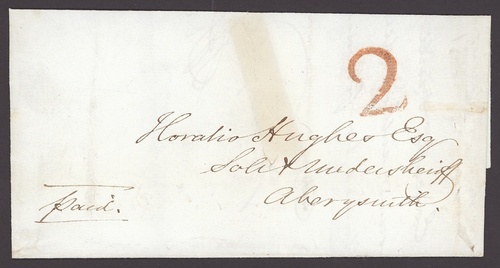 2
Horatio Hughes Esq
Soli & Undersheriff
Aberysmith.
Paid.